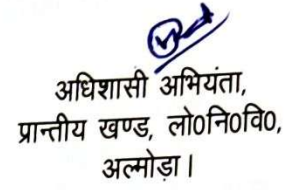 अधिशासी अभियंता,
प्रान्तीय खण्ड, लो०नि०वि०,
अल्मोड़ा।